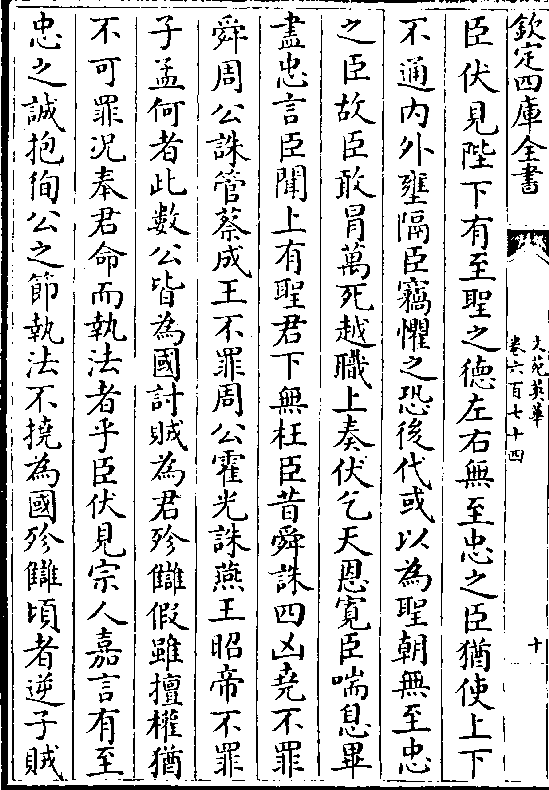 欽定四庫全書
文苑英華
卷六百七十四
十
臣伏見陛下有至聖之德左右無至忠之臣猶使上下
不通内外壅隔臣竊懼之恐後代或以為聖朝無至忠
之臣故臣敢冒萬死越職上奏伏乞天恩寛臣喘息畢
盡忠言臣聞上有聖君下無枉臣昔舜誅四凶堯不罪
舜周公誅管蔡成王不罪周公霍光誅燕王昭帝不罪
子孟何者此數公皆為國計賊為君殄讎假雖擅權猶
不可罪况奉君命而執法者乎臣伏見宗人嘉言有至
忠之誠抱徇公之節執法不撓為國殄讎頃者逆子賊